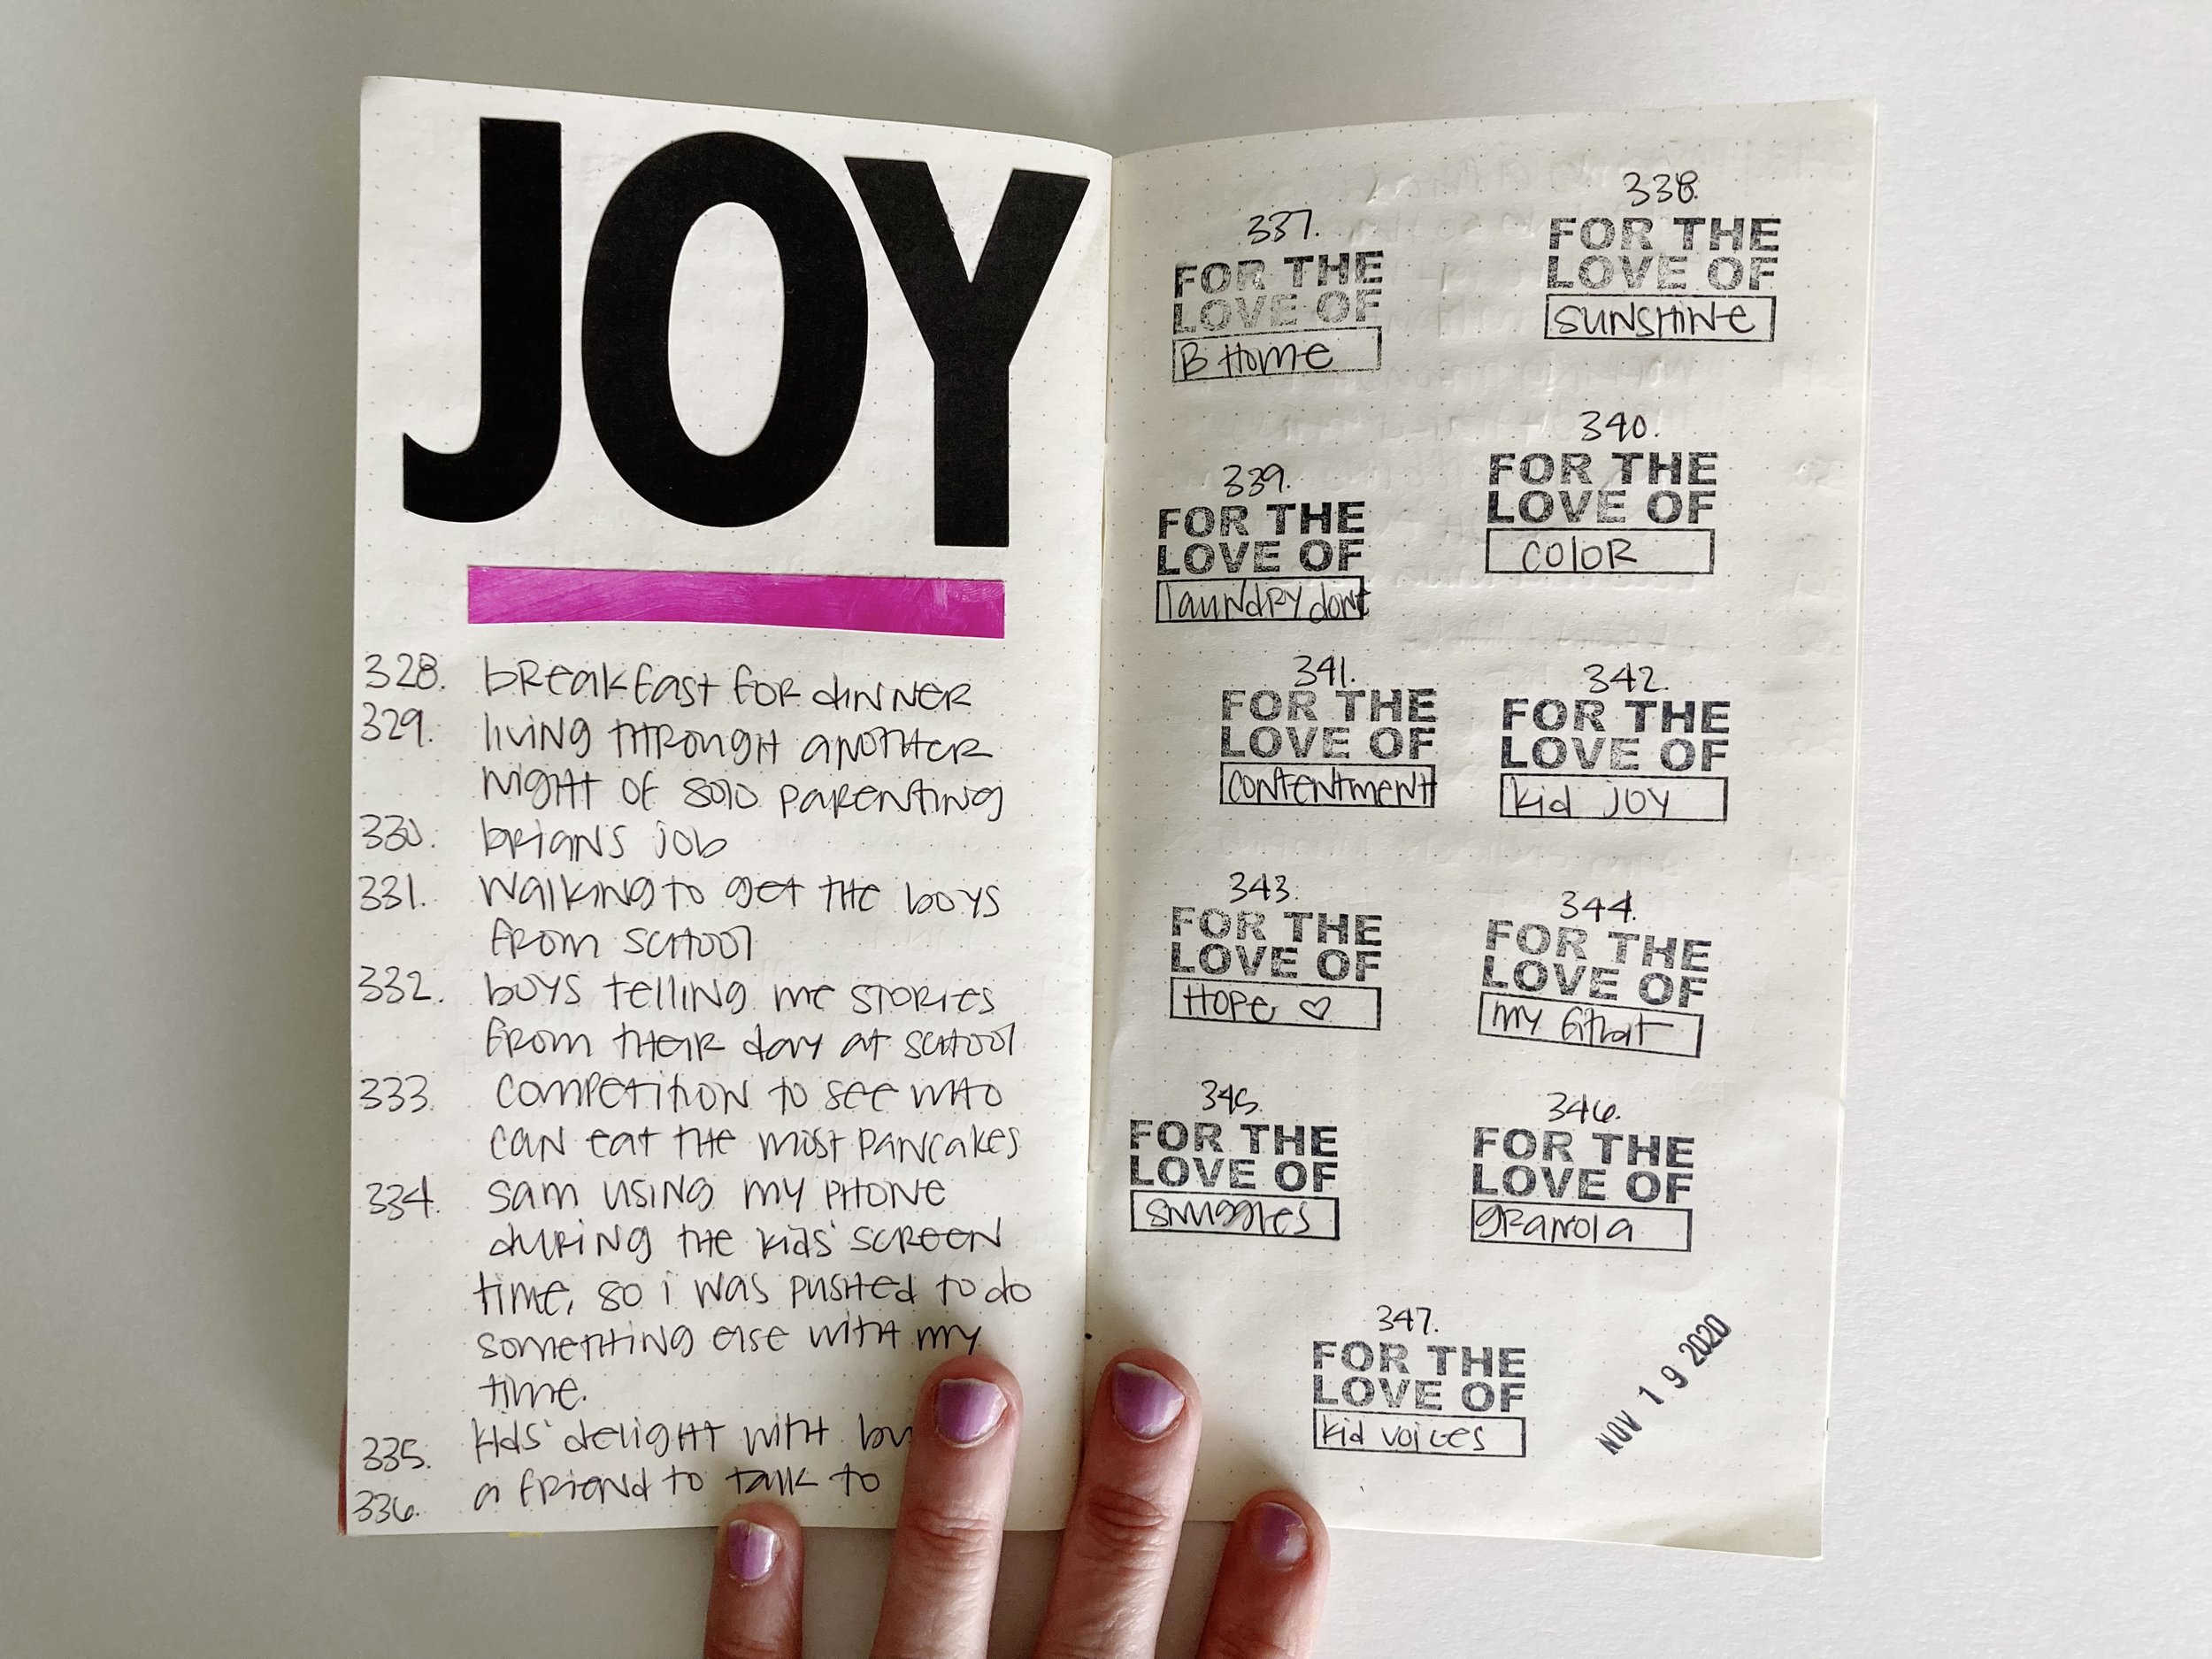 JOY
328. breakfast for dinner
329. living through another
night of solo parenting
330. brians job
331. walking to get the boys
from school
332. boys telling me stories
from their day at school
333. competition to see who
can eat the most pancakes
334. sam using my phone
during the kids' screen
time, so i was pushed to do
something else with my
time.
335. kids' delight with
336. a friend to talk to
337.
FOR THE
LOVE OF
B Home
338.
FOR THE
LOVE OF
SUNSHINE
339.
FOR THE
LOVE OF
laundry done
340.
FOR THE
LOVE OF
COLOR
341.
FOR THE
LOVE OF
contentment
342.
FOR THE
LOVE OF
kid JOY
343.
FOR THE
LOVE OF
HOPE ♡
344.
FOR THE
LOVE OF
my
345.
FOR THE
LOVE OF
snuggles
346.
FOR THE
LOVE OF
granola
347.
FOR THE
LOVE OF
kid voices
NOV 19 2020